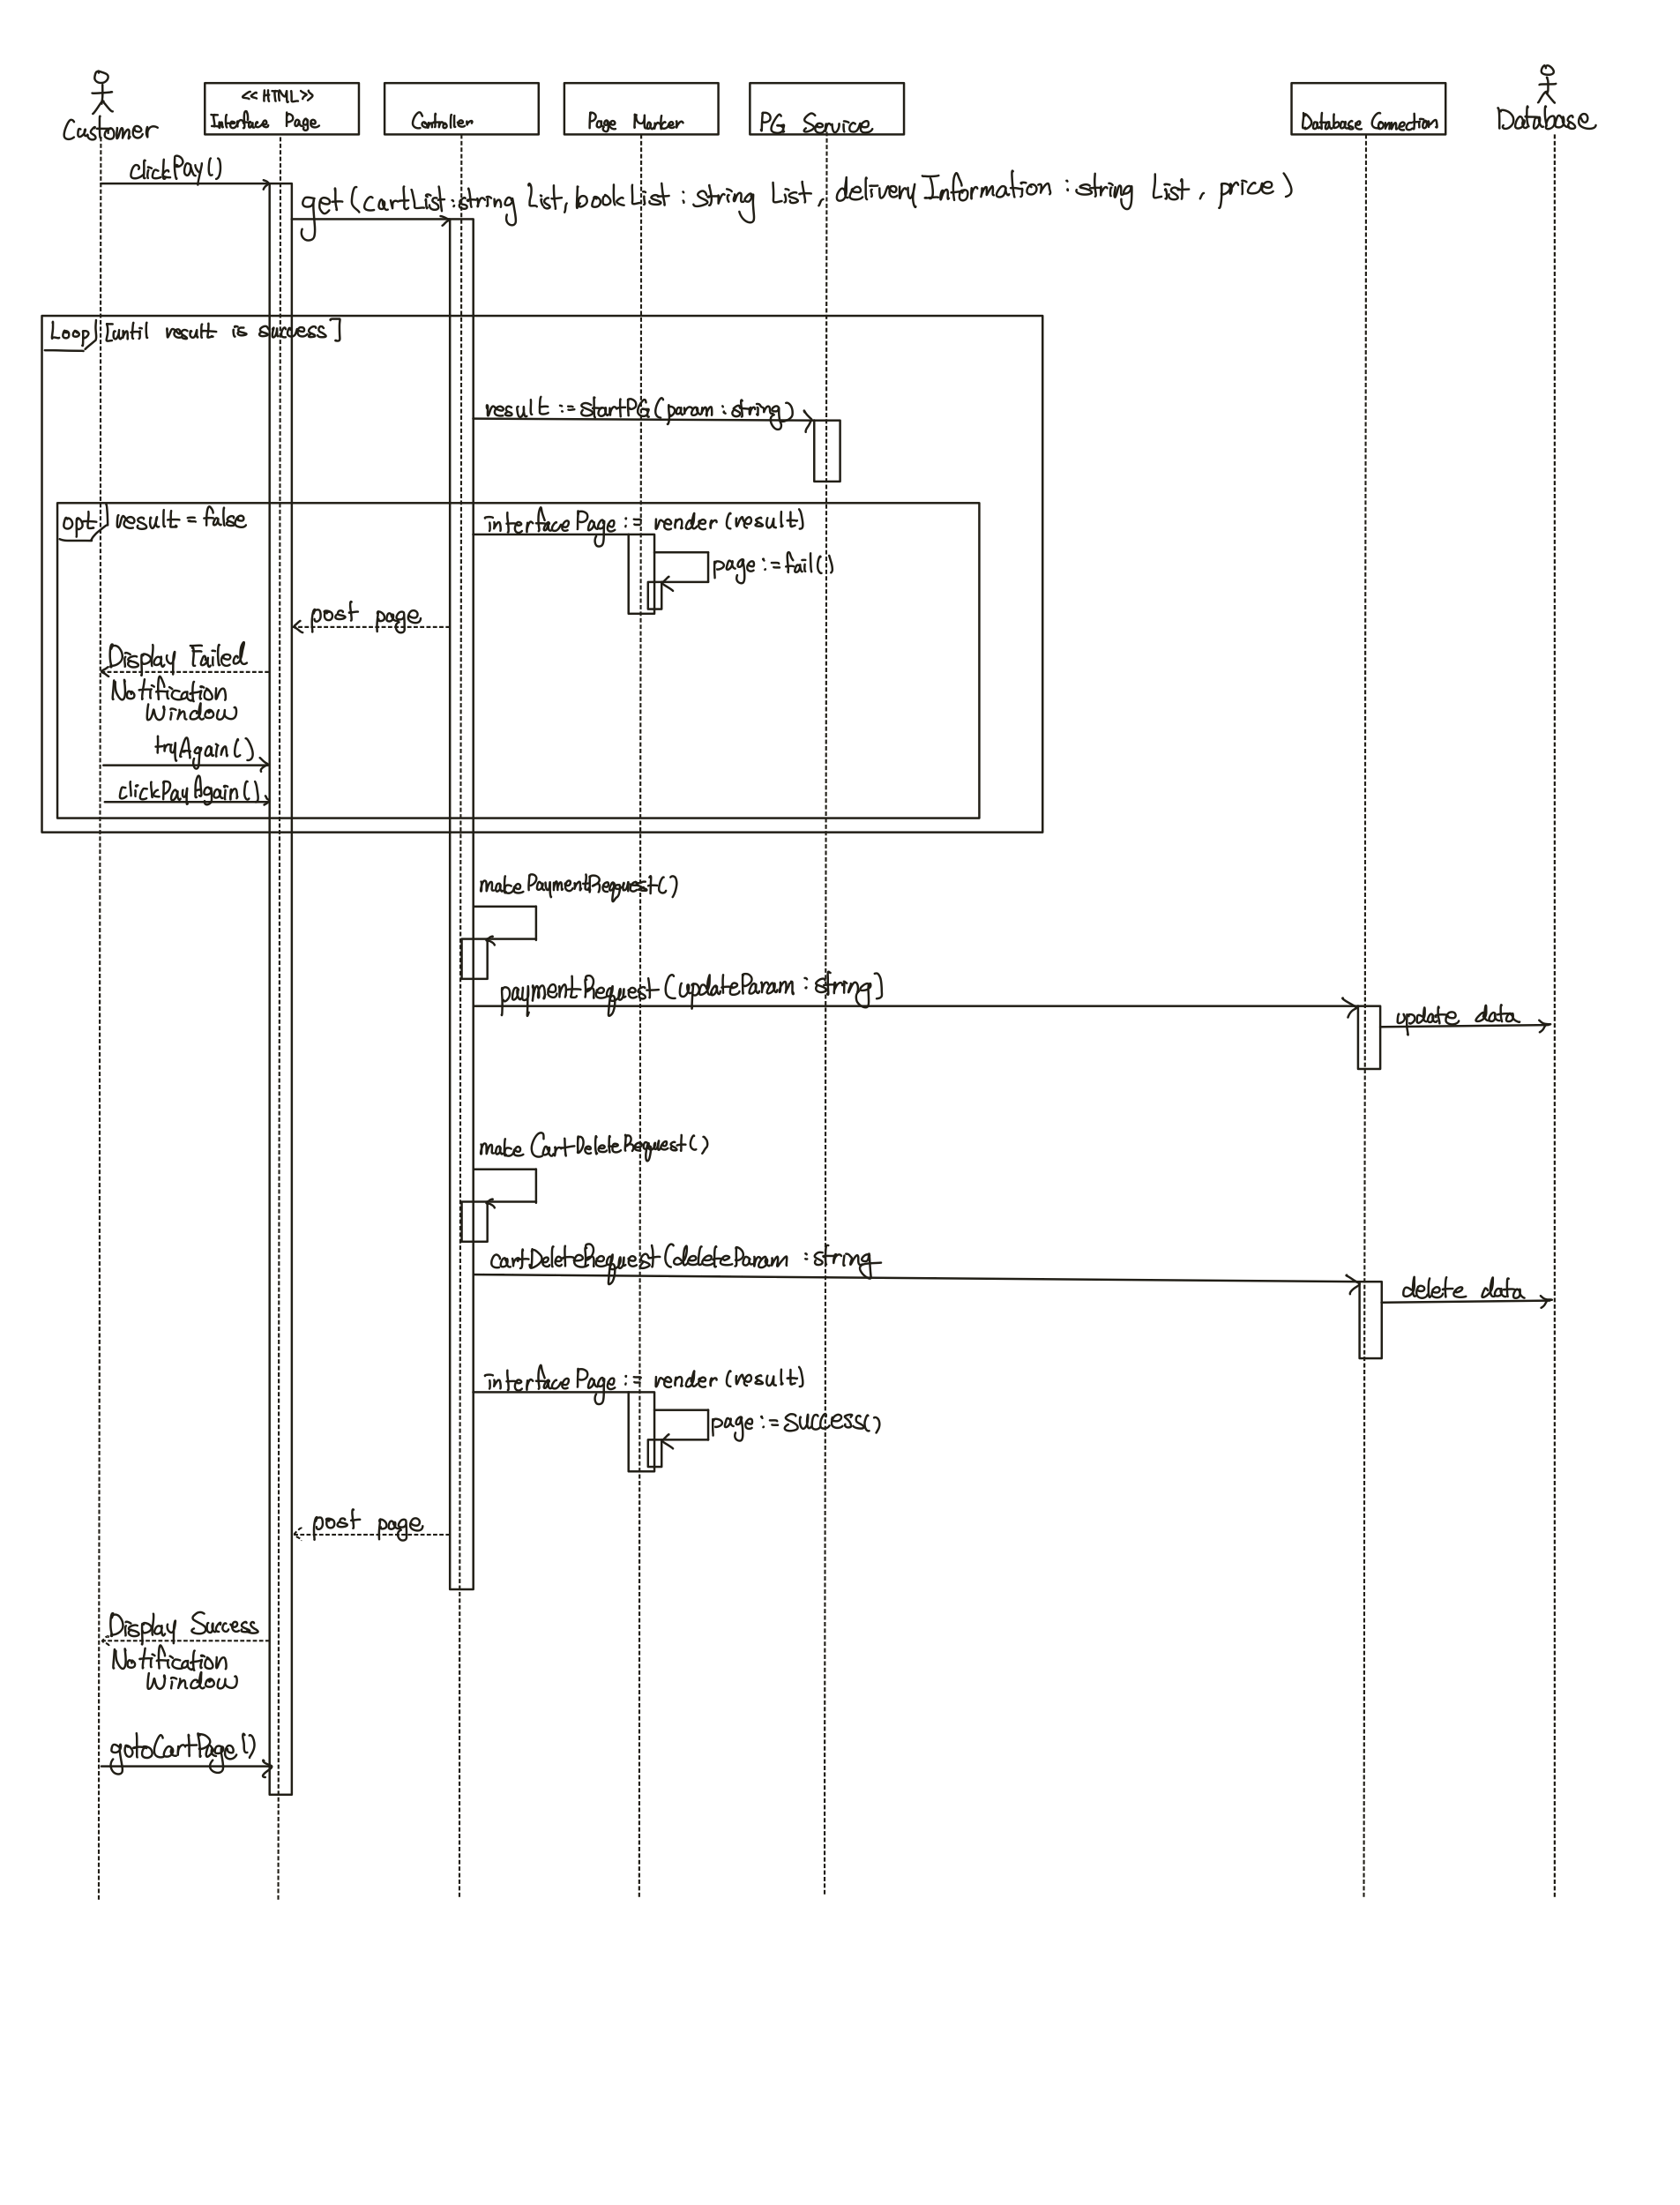 Customer
<< HTML >>
Interface Page
Controller
Page Marker
PG Service
Database Connection
Database
clickPay()
get(cartList:string List, bookList : string List, deliveryInformation : string List, price)
Loop [until result is success]
result := startPG(param : string)
opt result = false
interfacePage := render (result)
page := fail()
post page
Display Failed
Notification
Window
tryAgain()
clickPayAgain()
makePaymentRequest()
paymentRequest(updateParam : string)
update data
make CartDeleteRequest()
cartDeleteRequest(deleteParam : string
delete data
interfacePage := render (result)
page := success()
post page
Display Success
Notification
Window
gotoCartPage()